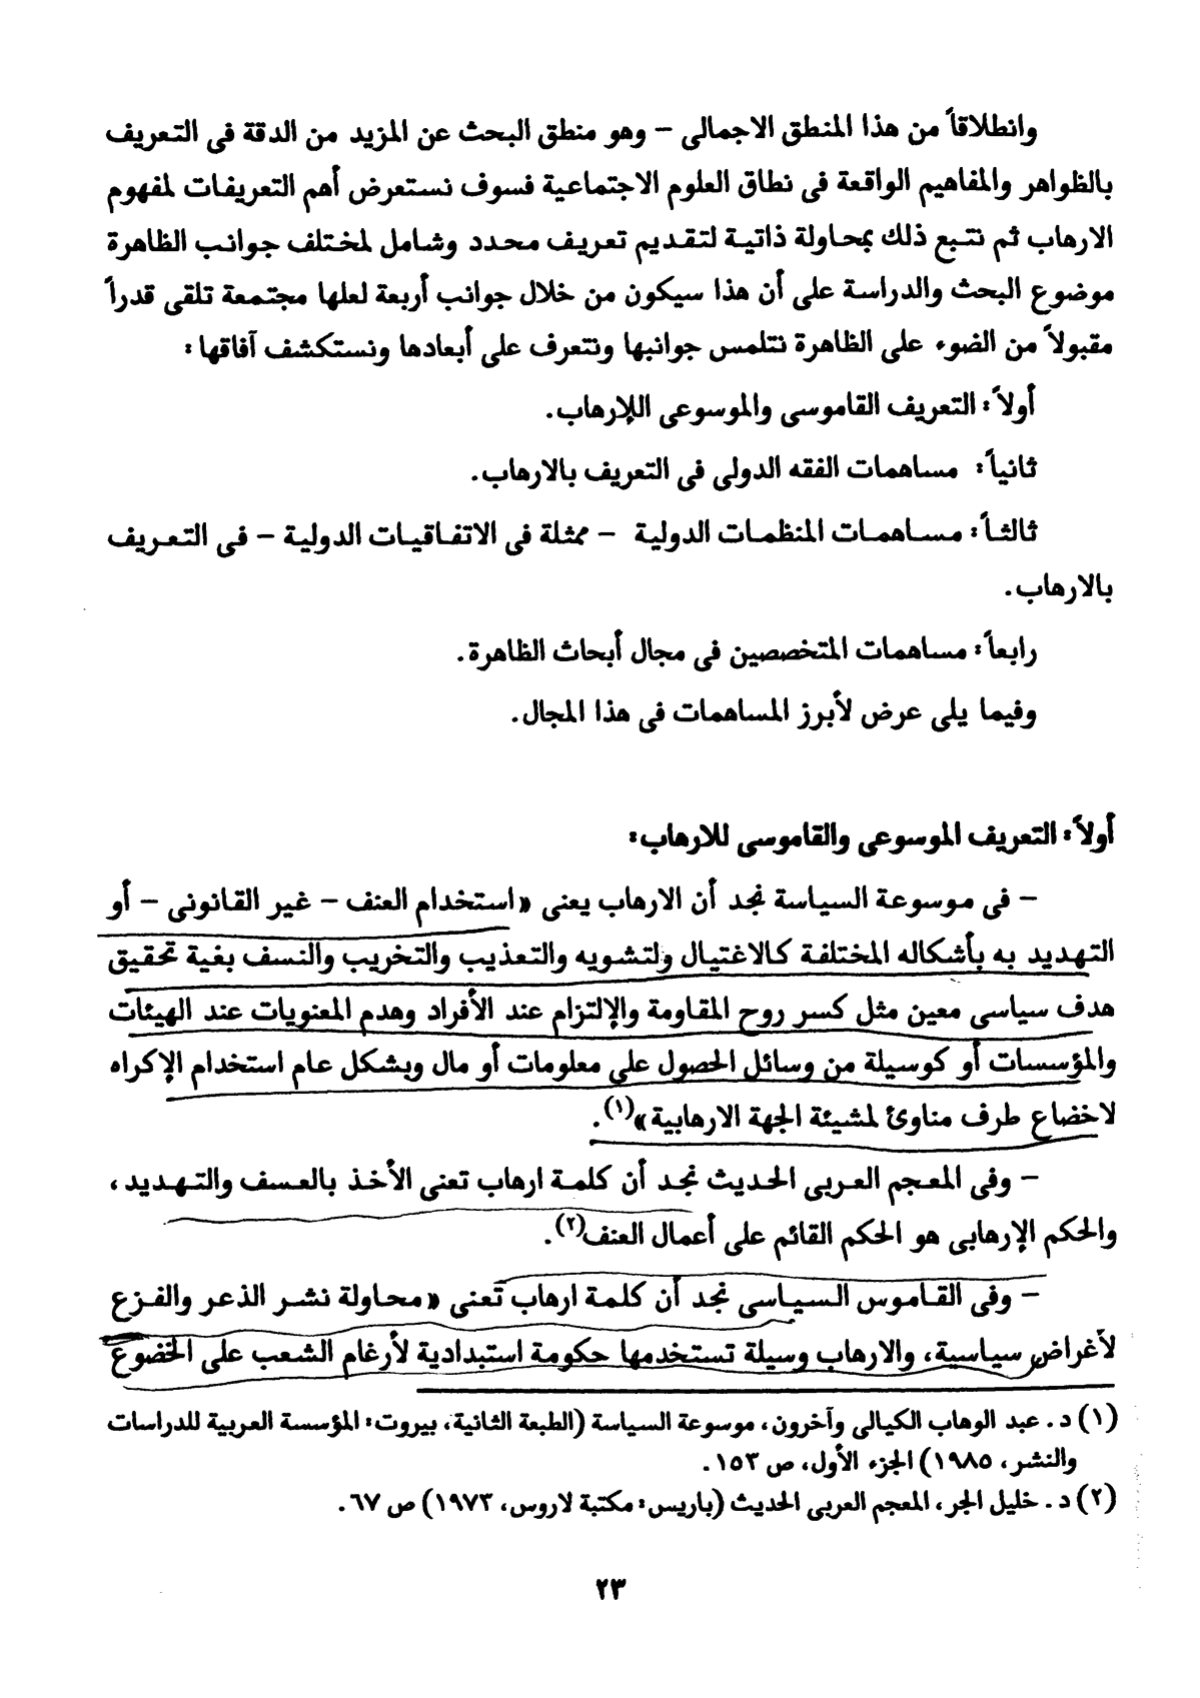 وانطلاقاً من هذا المنطق الاجمالى – وهو منطق البحث عن المزيد من الدقة فى التعريف
بالظواهر والمفاهيم الواقعة فى نطاق العلوم الاجتماعية فسوف نستعرض أهم التعريفات لمفهوم
الارهاب ثم نتبع ذلك بمحاولة ذاتية لتقديم تعريف محدد وشامل لمختلف جوانب الظاهرة
موضوع البحث والدراسة على أن هذا سيكون من خلال جوانب أربعة لعلها مجتمعة تلقى قدراً
مقبولاً من الضوء على الظاهرة نتلمس جوانبها ونتعرف على أبعادها ونستكشف آفاقها:
أولاً: التعريف القاموسى والموسوعى اللإرهاب.
ثانياً: مساهمات الفقه الدولى فى التعريف بالارهاب.
ثالثاً: مساهمات المنظمات الدولية – ممثلة فى الاتفاقيات الدولية – فى التعريف
بالارهاب.
رابعاً: مساهمات المتخصصين فى مجال أبحاث الظاهرة.
وفيما يلى عرض لأبرز المساهمات فى هذا المجال.
أولاً: التعريف الموسوعى والقاموسى للارهاب:
– فى موسوعة السياسة نجد أن الارهاب يعنى «استخدام العنف – غير القانونى – أو
التهديد به بأشكاله المختلفة كالاغتيال ولتشويه والتعذيب والتخريب والنسف بغية تحقيق
هدف سياسى معين مثل كسر روح المقاومة والإلتزام عند الأفراد وهدم المعنويات عند الهيئات
والمؤسسات أو كوسيلة من وسائل الحصول على معلومات أو مال وبشكل عام استخدام الإكراه
لاخضاع طرف مناوئ لمشيئة الجهة الارهابية»(١).
– وفى المعجم العربى الحديث نجد أن كلمة ارهاب تعنى الأخذ بالعسف والتهديد،
والحكم الإرهابى هو الحكم القائم على أعمال العنف(٢).
– وفى القاموس السياسى نجد أن كلمة ارهاب تعنى «محاولة نشر الذعر والفزع
لأغراض سياسية، والارهاب وسيلة تستخدمها حكومة استبدادية لأرغام الشعب على الخضوع
(١) د. عبد الوهاب الكيالى وآخرون، موسوعة السياسة (الطبعة الثانية، بيروت: المؤسسة العربية للدراسات
والنشر، ١٩٨٥) الجزء الأول، ص ١٥٣.
(٢) د. خليل الجر، المعجم العربى الحديث (باريس: مكتبة لاروس، ١٩٧٣) ص ٦٧.
٢٣